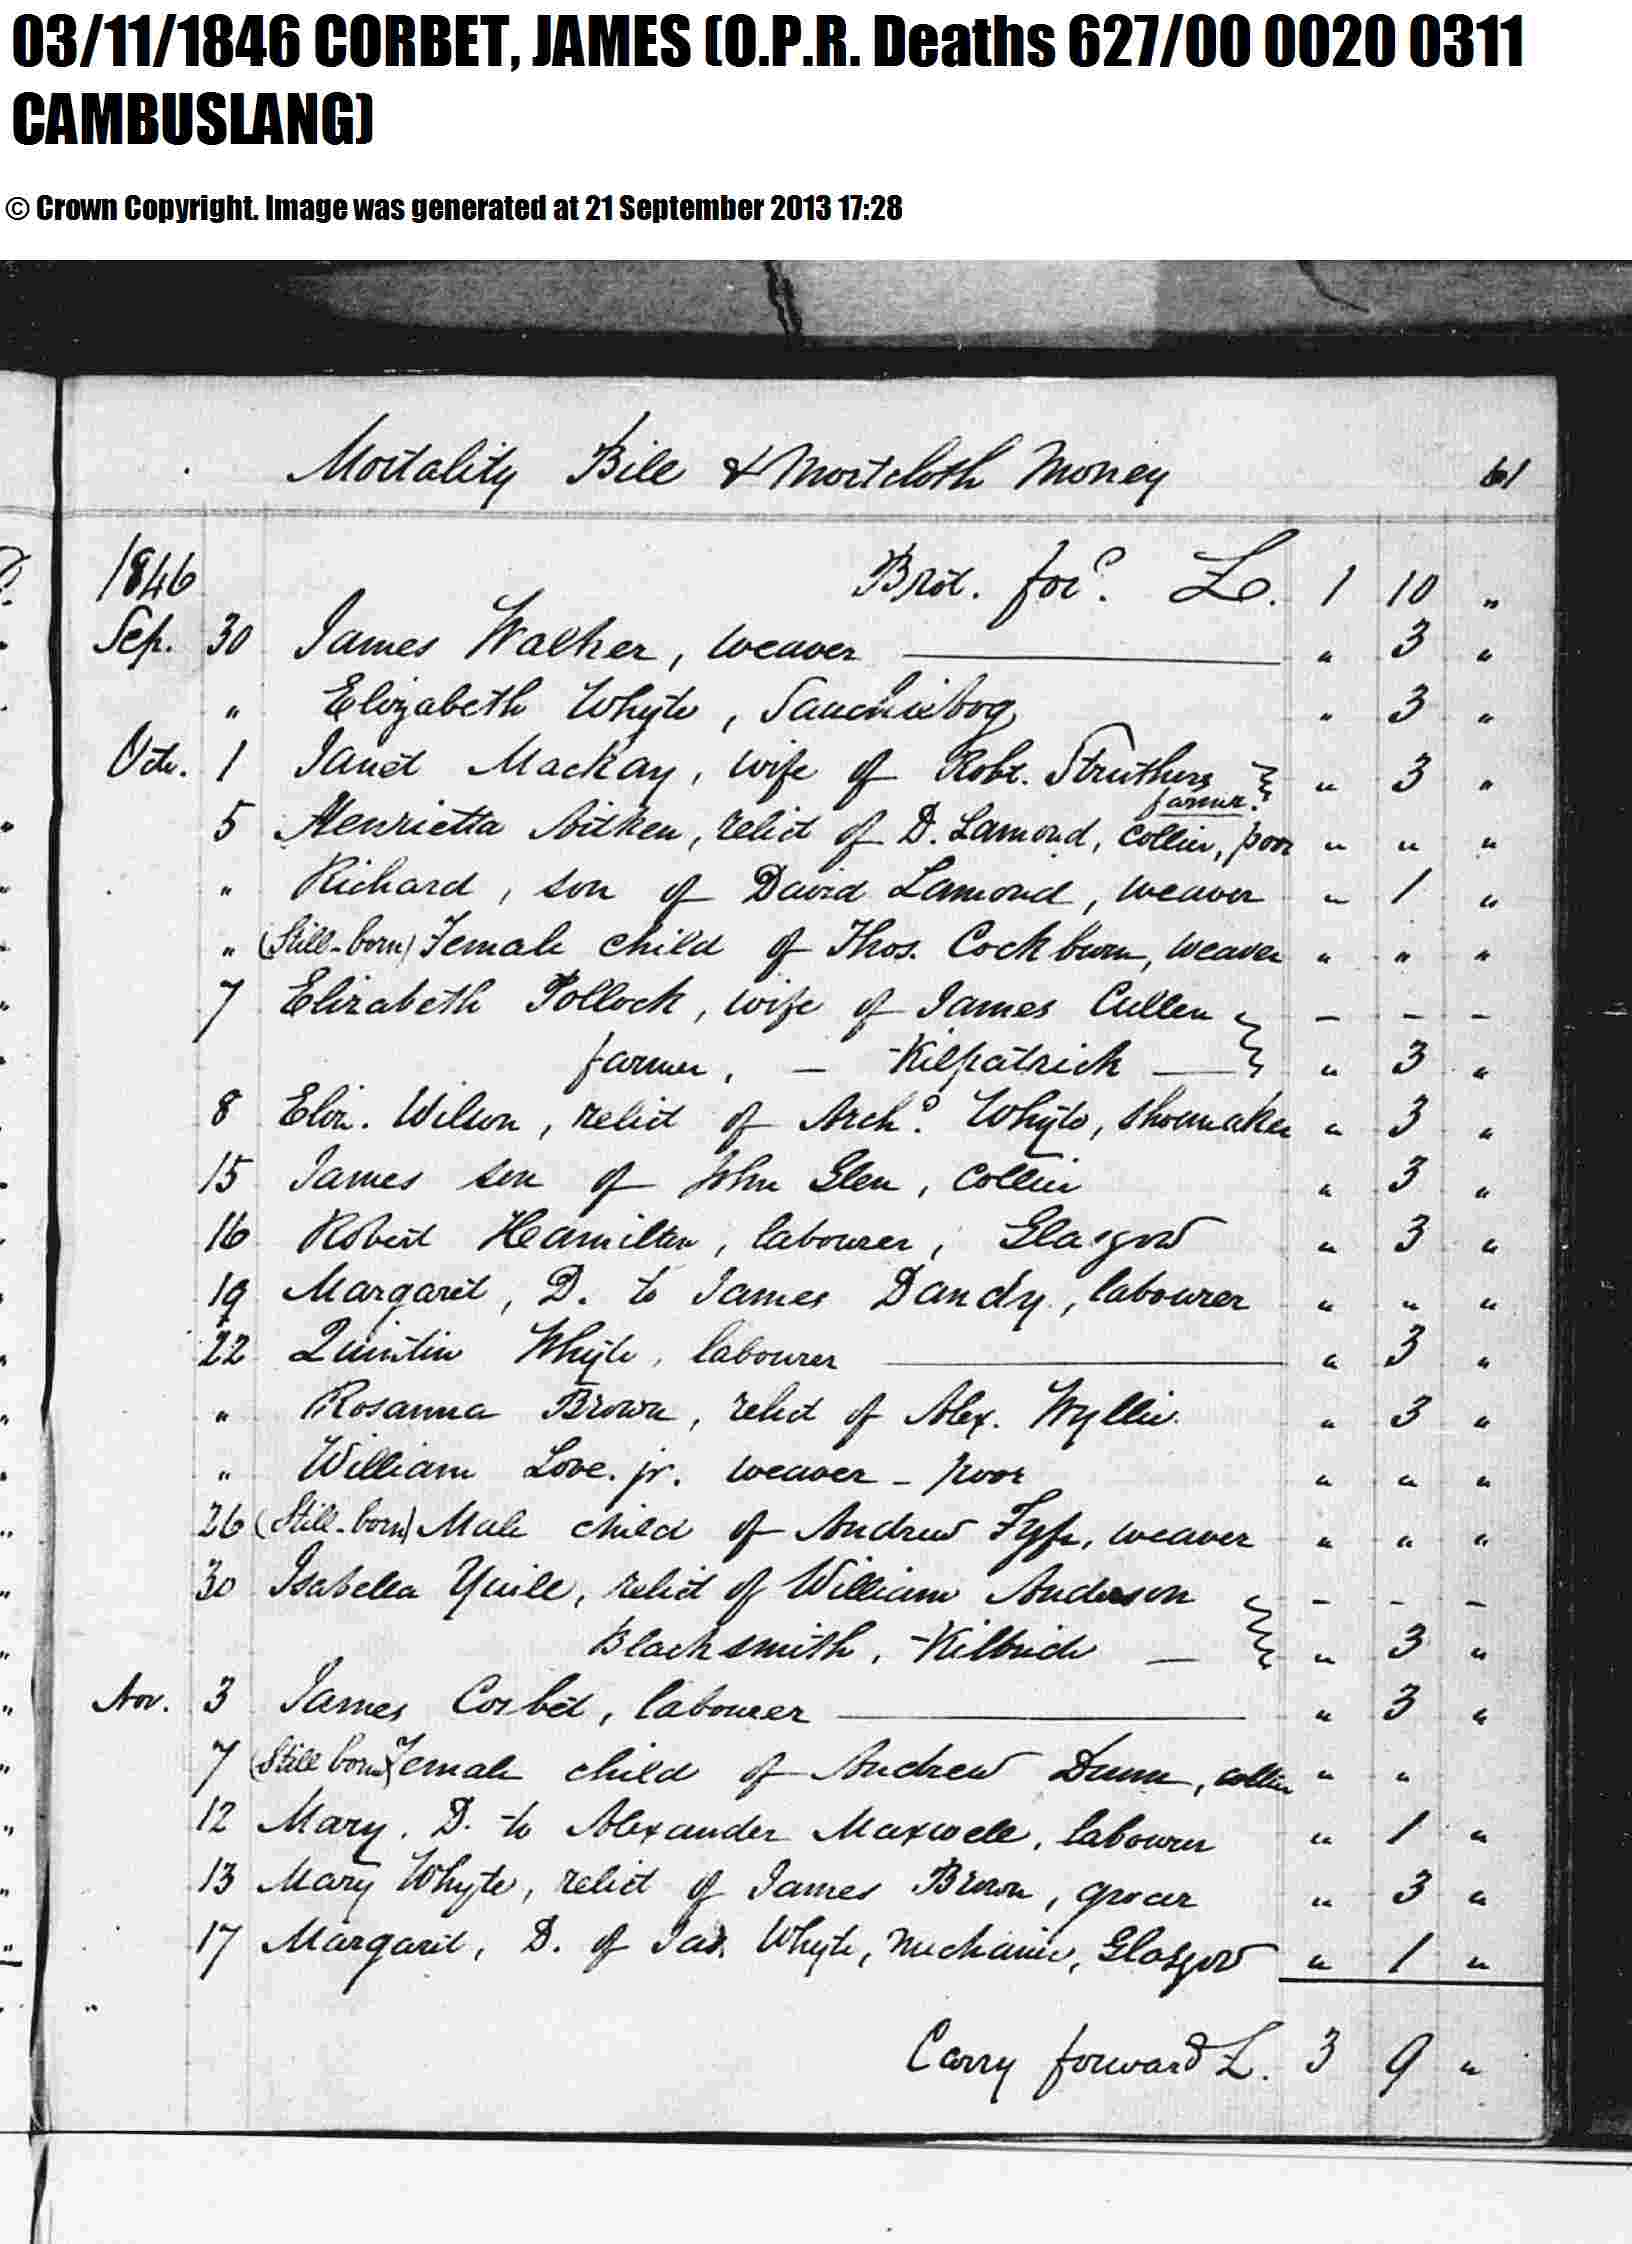 03/11/1846 CORBET, JAMES (O.P.R. Deaths 627/00 0020 0311
CAMBUSLANG)
© Crown Copyright. Image was generated at 21 September 2013 17:28
Mortality Bill & Mortcloth Money 61
1846 Brot. for.d L. 1 10 "
Sep. 30 James Walker, weaver " 3 "
" Elizabeth Whyte, Sauchiebog " 3 "
Oct. 1 Janet Mackay, wife of Robt. Struthers " 3 "
farmer.
5 Henrietta Aitken, relict of D. Lamond, Collier, poor " " "
" Richard, son of David Lamond, weaver " 1 "
" (Still-born) Female child of Thos. Cockburn, weaver " " "
7 Elizabeth Pollock, wife of James Cullen - - -
farmer, - Kilpatrick — " 3 "
8 Eliz. Wilson, relict of Arch.d Whyte, shoemaker " 3 "
15 James son of John Glen, Collier " 3 "
16 Robert Hamilton, labourer, Glasgow " 3 "
19 Margaret, D. to James Dandy, labourer " " "
22 Quintin Whyte, labourer " 3 "
" Rosanna Brown, relict of Alex. Wyllie. " 3 "
" William Love. jr. weaver - poor " " "
26 (Still-born) Male child of Andrew Fyfe, weaver " " "
30 Isabella Yuill, relict of William Anderson - - -
Blacksmith, Kilbride — " 3 "
Nov. 3 James Corbet, labourer " 3 "
7 (Still born) Female child of Andrew Dunn, collier " "
12 Mary, D. to Alexander Maxwell, labourer " 1 "
13 Mary Whyte, relict of James Brown, grocer " 3 "
17 Margaret, D. of Jas. Whyte, mechanic, Glasgow " 1 "
"
Carry forward L. 3 9 "